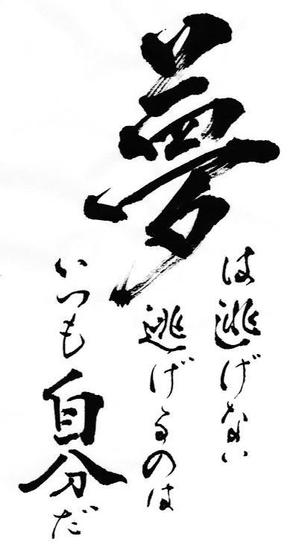 夢
は逃げない
逃げるのは
いつも自分だ